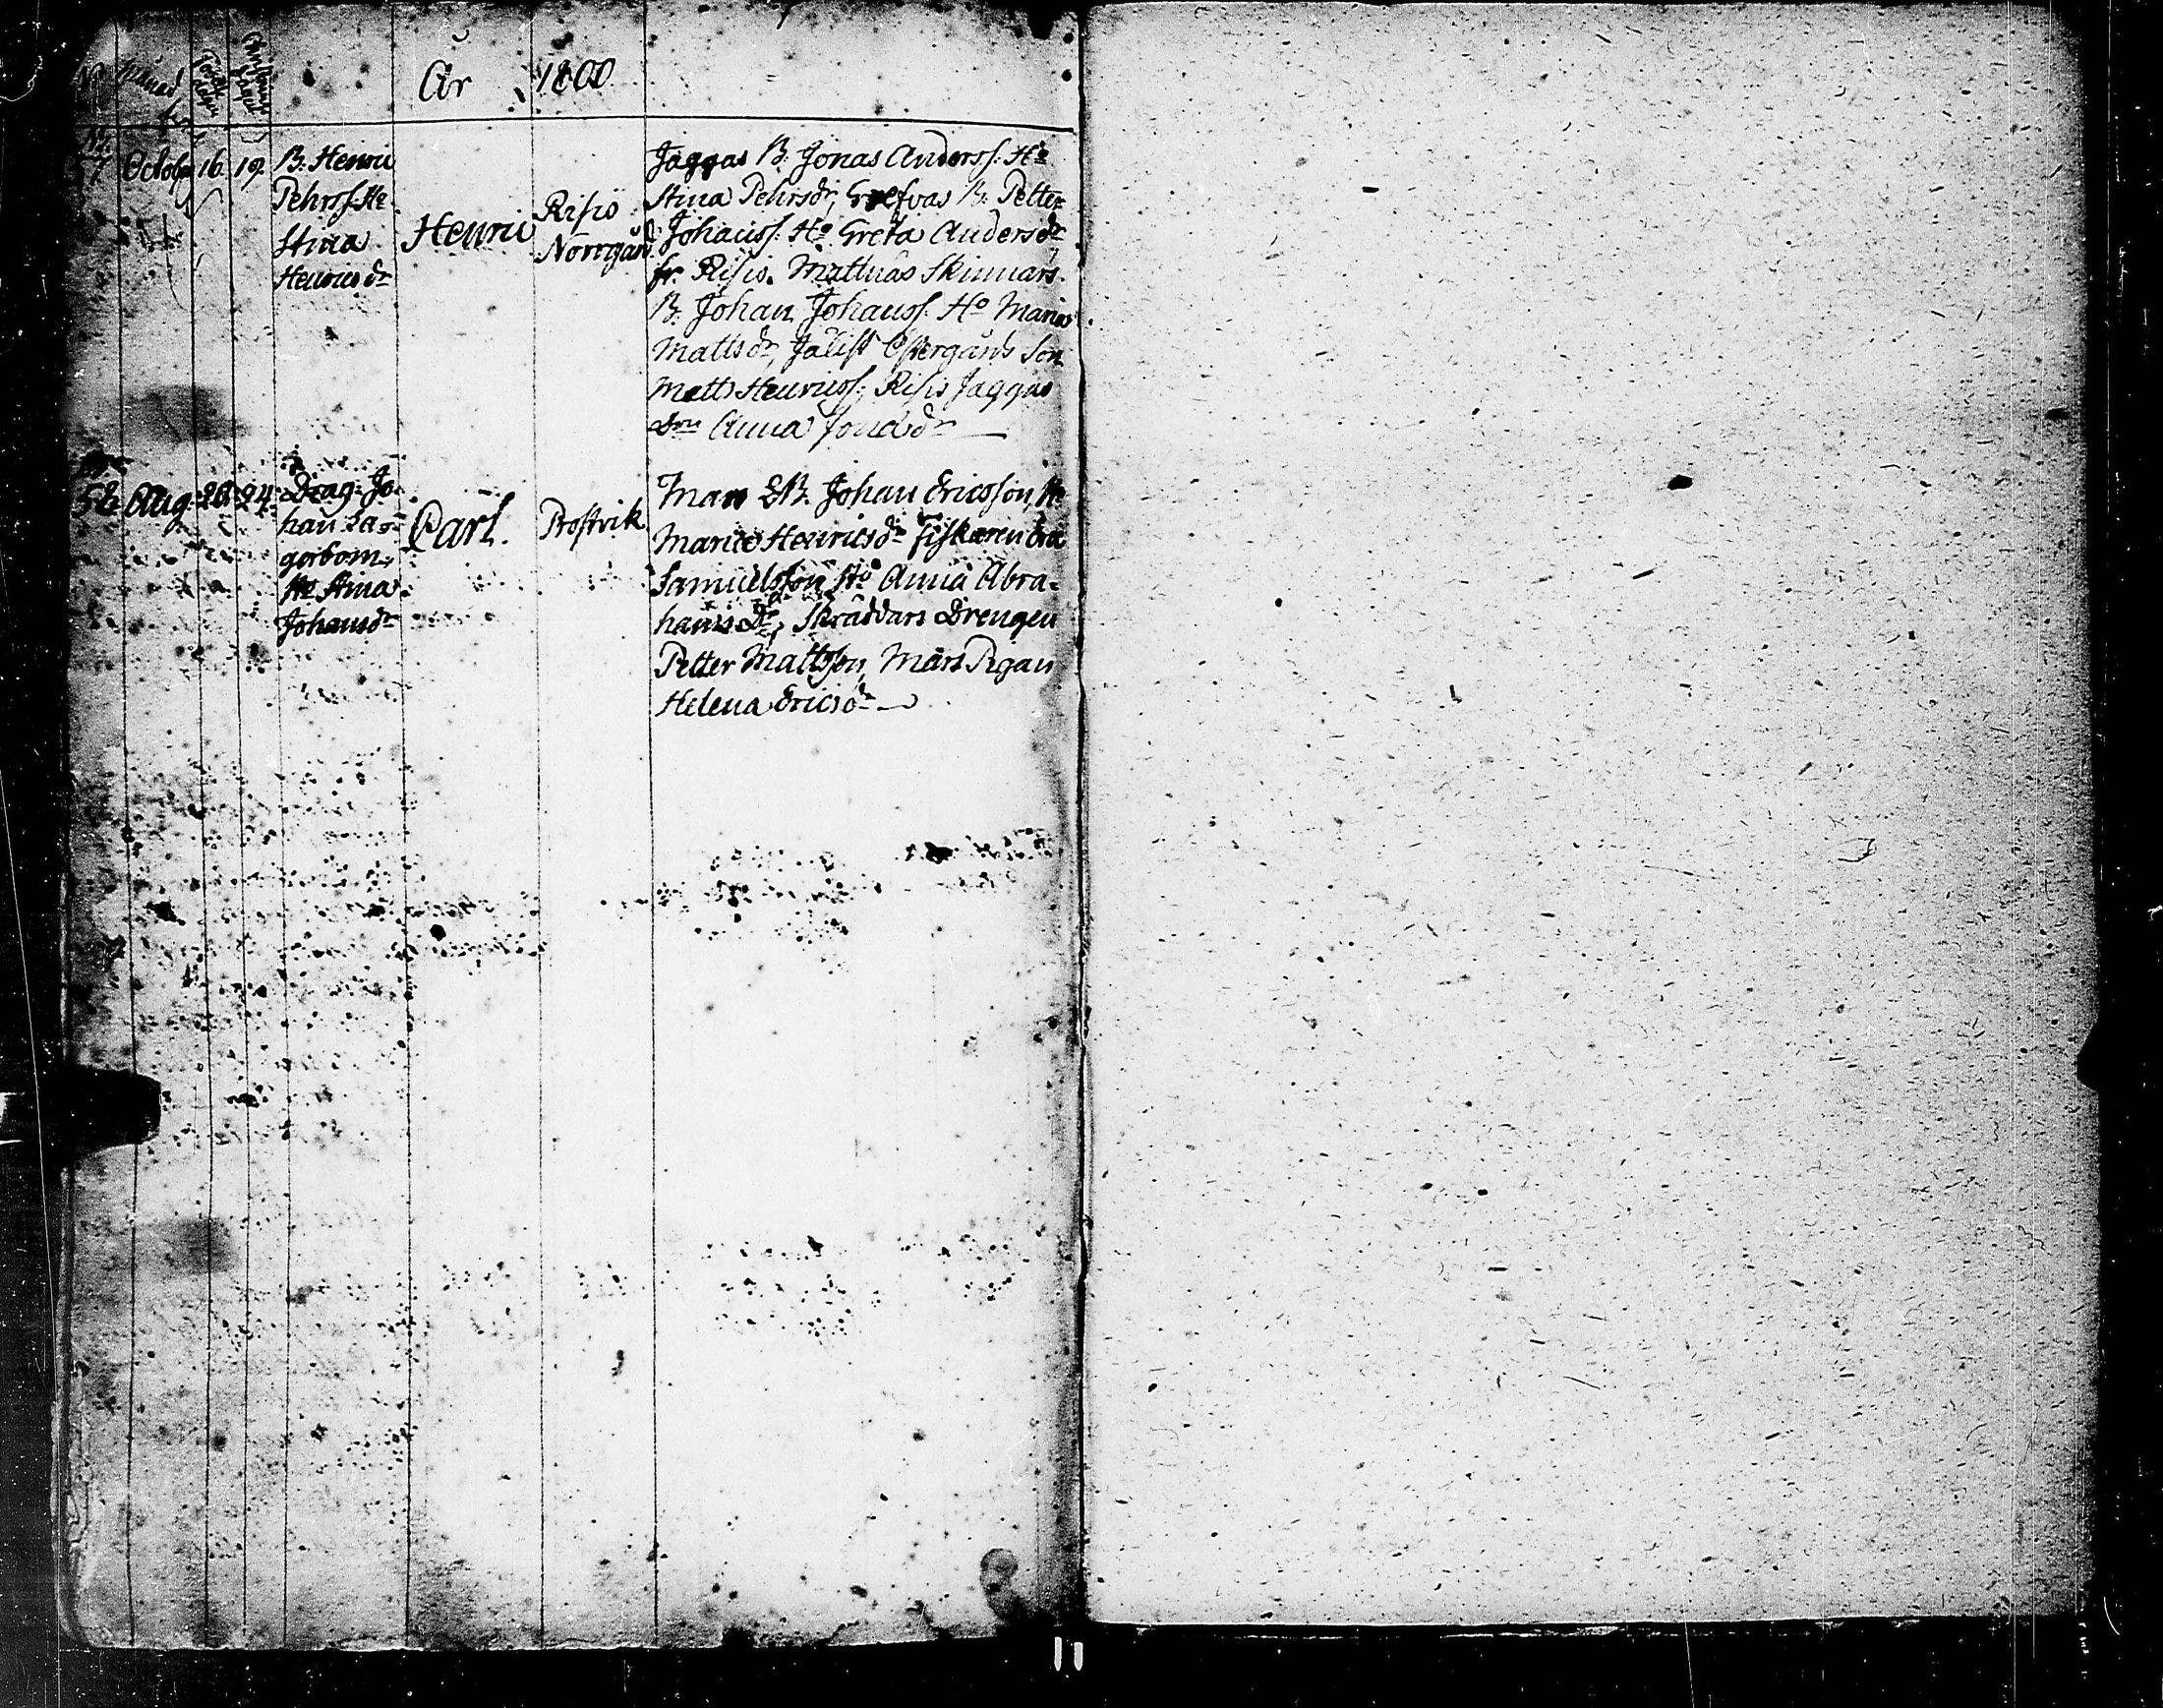 År 1800
No Månad Födelse Dagen Christnings Dagen
No
57 October 16. 19. B. Henric
Pehrss. Ho
Stina
Henricsdr
Henric
Risiö
Norrgård
Jaggas B. Jonas Anderss. Ho
Stina Pehrsdr, Grefvas B. Petter
Johanss. Ho Greta Andersdr
fr. Risiö. Mattnäs Skinnars
B. Johan Johanss. Ho Maria
Mattsdr, Jälist Östergårds Son
Matts Henricss., Risiö Jaggas
Anna Jonædr
58 Aug. 23 24 Drag. Jo-
han La-
gerbom,
Ho Stina
Johansdr
Carl.
Prostvik
Mars LB. Johan Ericsson, Ho
Maria Henricsdr Fiskaren
Samuelsson Ho Anna Abra-
hamsdr, Skräddars Drengen
Petter Mattsson, Mars Pigan
Helena Ericsdr
11